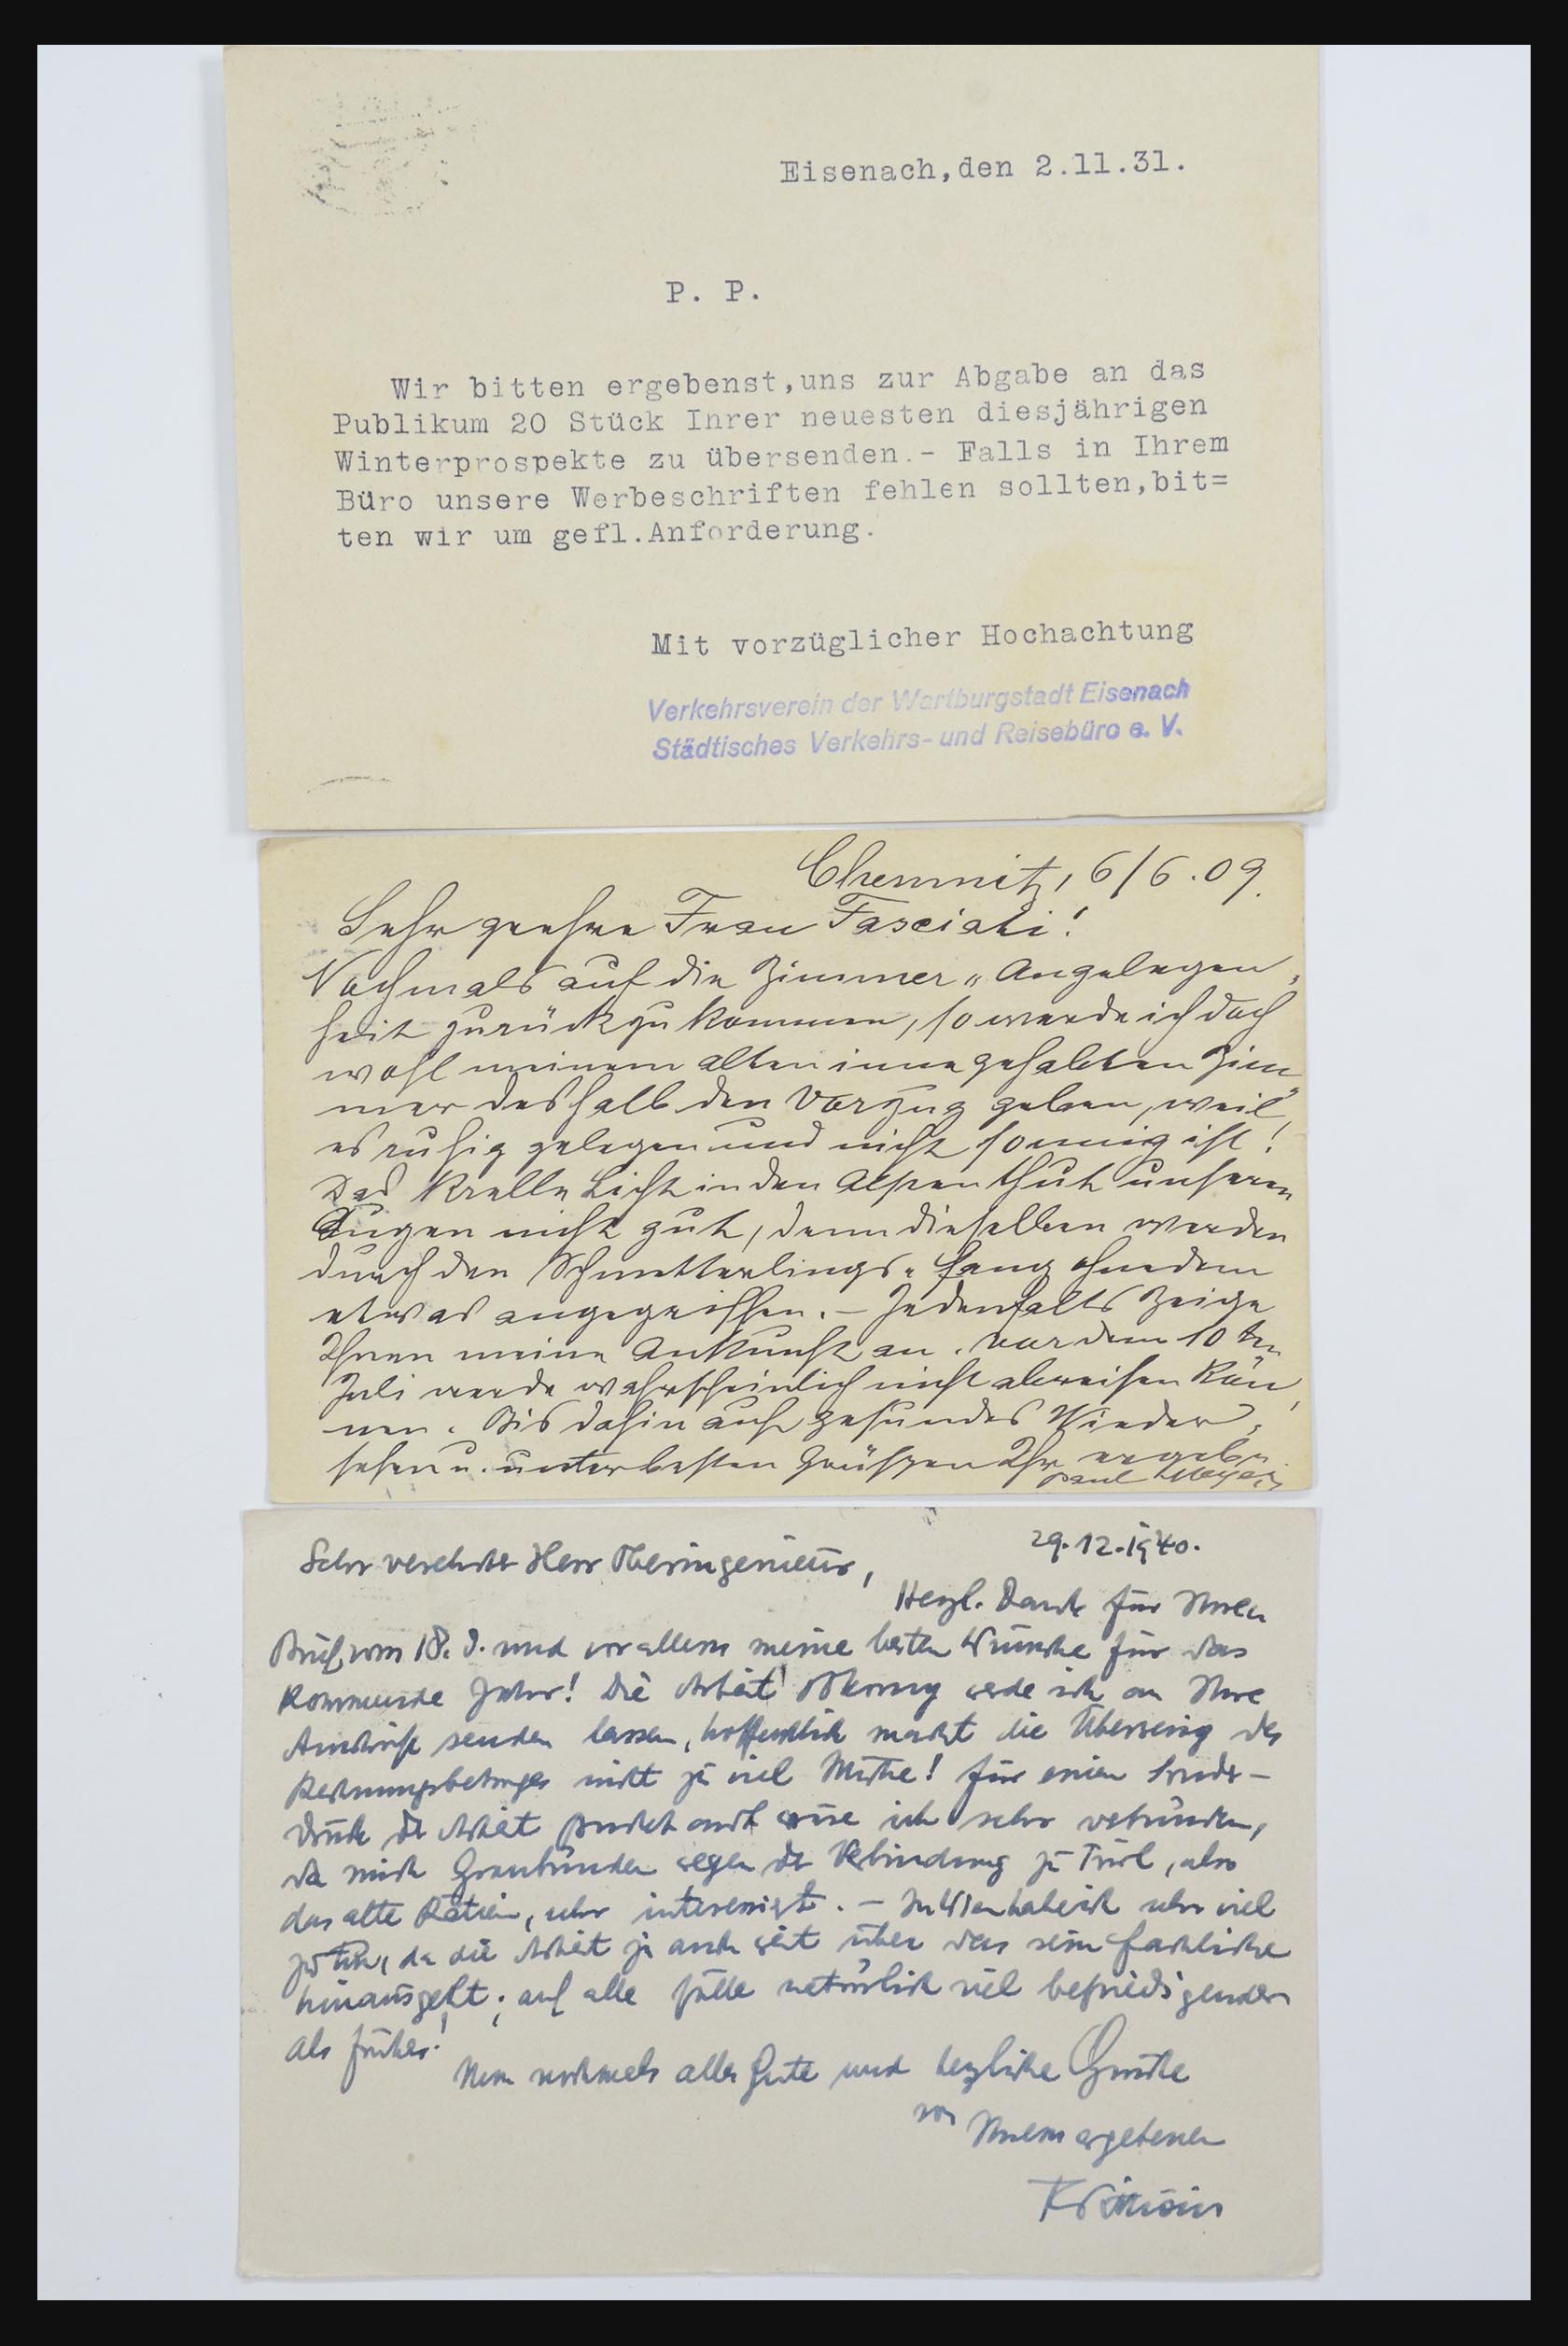 Eisenach,den 2.11.31.
P. P.
Wir bitten ergebenst,uns zur Abgabe an das
Publikum 20 Stück Ihrer neuesten diesjährigen
Winterprospekte zu übersenden.- Falls in Ihrem
Büro unsere Werbeschriften fehlen sollten,bit=
ten wir um gefl.Anforderung.
Mit vorzüglicher Hochachtung
Verkehrsverein der Wartburgstadt Eisenach
Städtisches Verkehrs- und Reisebüro e. V.
Chemnitz, 6/6.09.
Sehr geehrte Frau Fasciati!
Nochmals auf die Zimmer „ Angelegen„
heit zurück zu kommen, so werde ich doch
wohl meinem alten inne gehabten Zim„
mer deshalb den Vorzug geben, weil
es ruhig gelegen und nicht sonnig ist!
Das Krelle Licht in den Alpen thut unseren
Augen nicht gut, denn dieselben werden
durch den Schmetterlings„ fang ohnedem
etwas angegriffen. – Jedenfalls Zeige
Ihnen meine Ankunft an. Vor dem 10 ten
Juli werde wahrscheinlich nicht abreisen Kön„
nen. Bis dahin auf gesundes Wieder„
sehen u. unter besten Grüßen Ihr ergebn.
Paul Meyer
29.12.1940.
Sehr verehrter Herr Oberingenieur,
Herzl. Dank für Ihren
Brief vom 18. d. und vor allem meine besten Wünsche für das
Kommende Jahr! Die Arbeit werde ich an Ihre
Anschrift senden lassen, hoffentlich macht die Überweisg des
Rechnungsbetrages nicht zu viel Mühe! Für einen Sonder-
druck der Arbeit wäre ich sehr verbunden,
da mich Graubünden wegen der Verbindung zu Tirol, also
das alte Rätien, sehr interessiert. – In Wien habe ich sehr viel
zu tun, da die Arbeit ja auch weit über das rein fachliche
hinausgeht; auf alle Fälle natürlich viel befriedigender
als früher!
Nun nochmals alles Gute und herzliche Grüße
von Ihrem ergebenen